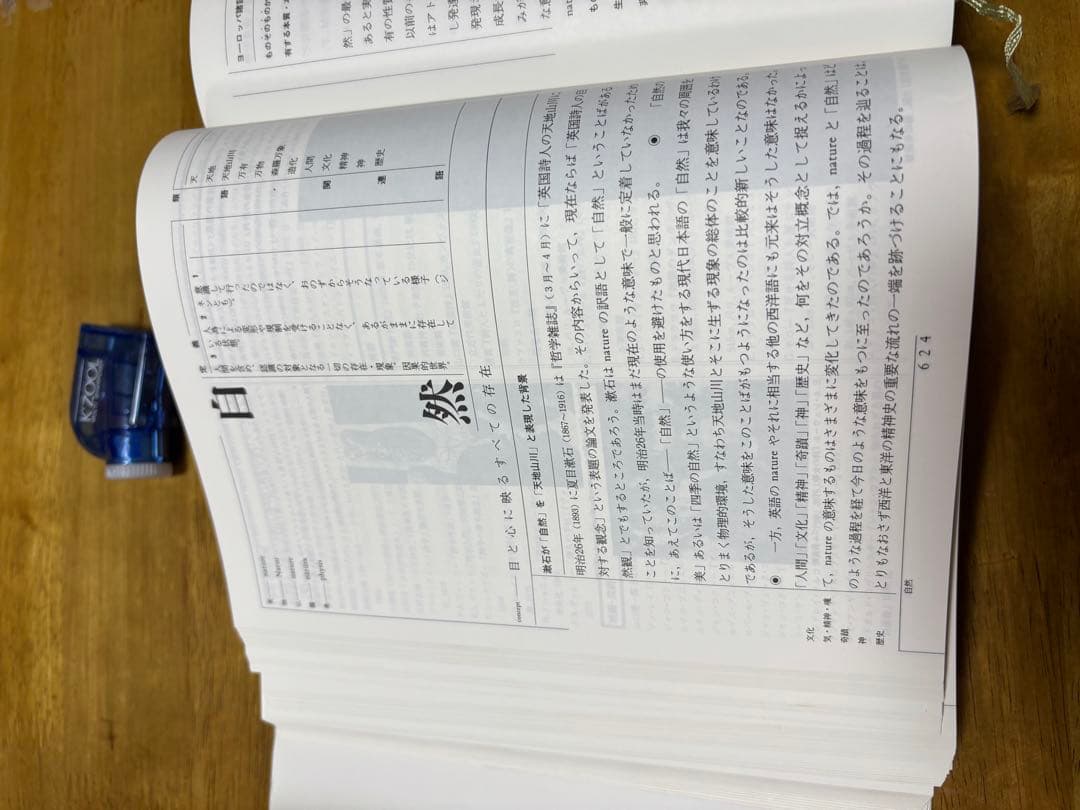 自然
nature
Natur
nature
natura
physis
義
1 意識して行ったのではなく、おのずからそうなっている様子(ジ
ネンとも)。2 人為による変形や規制を受けることなく、あるがままに存在して
いる状態。3
類語
天
天地
天地山川
万有
万物
森羅万象
造化
関連語
人間
文化
精神
神
歴史
concept——目と心に映るすべての存在
漱石が「自然」を「天地山川」と表現した背景
明治26年(1893)に夏目漱石(1867〜1916)は『哲学雑誌』(3月〜4月)に「英国詩人の天地山川に
対する観念」という表題の論文を発表した。その内容からいって、現在ならば「英国詩人の自
然観」とでもするところであろう。漱石は nature の訳語として「自然」ということばがある
ことを知っていたが、明治26年当時はまだ現在のような意味で一般に定着していなかったため
に、あえてこのことば——「自然」——の使用を避けたものと思われる。
◉ 「自然の
美」あるいは「四季の自然」というような使い方をする現代日本語の「自然」は我々の周囲を
とりまく物理的環境、すなわち天地山川とそこに生ずる現象の総体のことを意味しているわけ
であるが、そうした意味をこのことばがもつようになったのは比較的新しいことなのである。
◉ 一方、英語の nature やそれに相当する他の西洋語にも元来はそうした意味はなかった。
「人間」「文化」「精神」「奇蹟」「神」「歴史」など、何をその対立概念として捉えるかによっ
て、nature の意味するものはさまざまに変化してきたのである。では、nature と「自然」はど
のような過程を経て今日のような意味をもつに至ったのであろうか。その過程を辿ることは、
とりもなおさず西洋と東洋の精神史の重要な流れの一端を跡づけることにもなる。
文化
気・精神・魂
奇蹟
神
歴史
自然
624
ヨーロッパ諸語
ものそのものが
有する本質・
然」の最
あると実
有の性質
以前の
はアト
し発達
発現
成長
みが
KZOOL